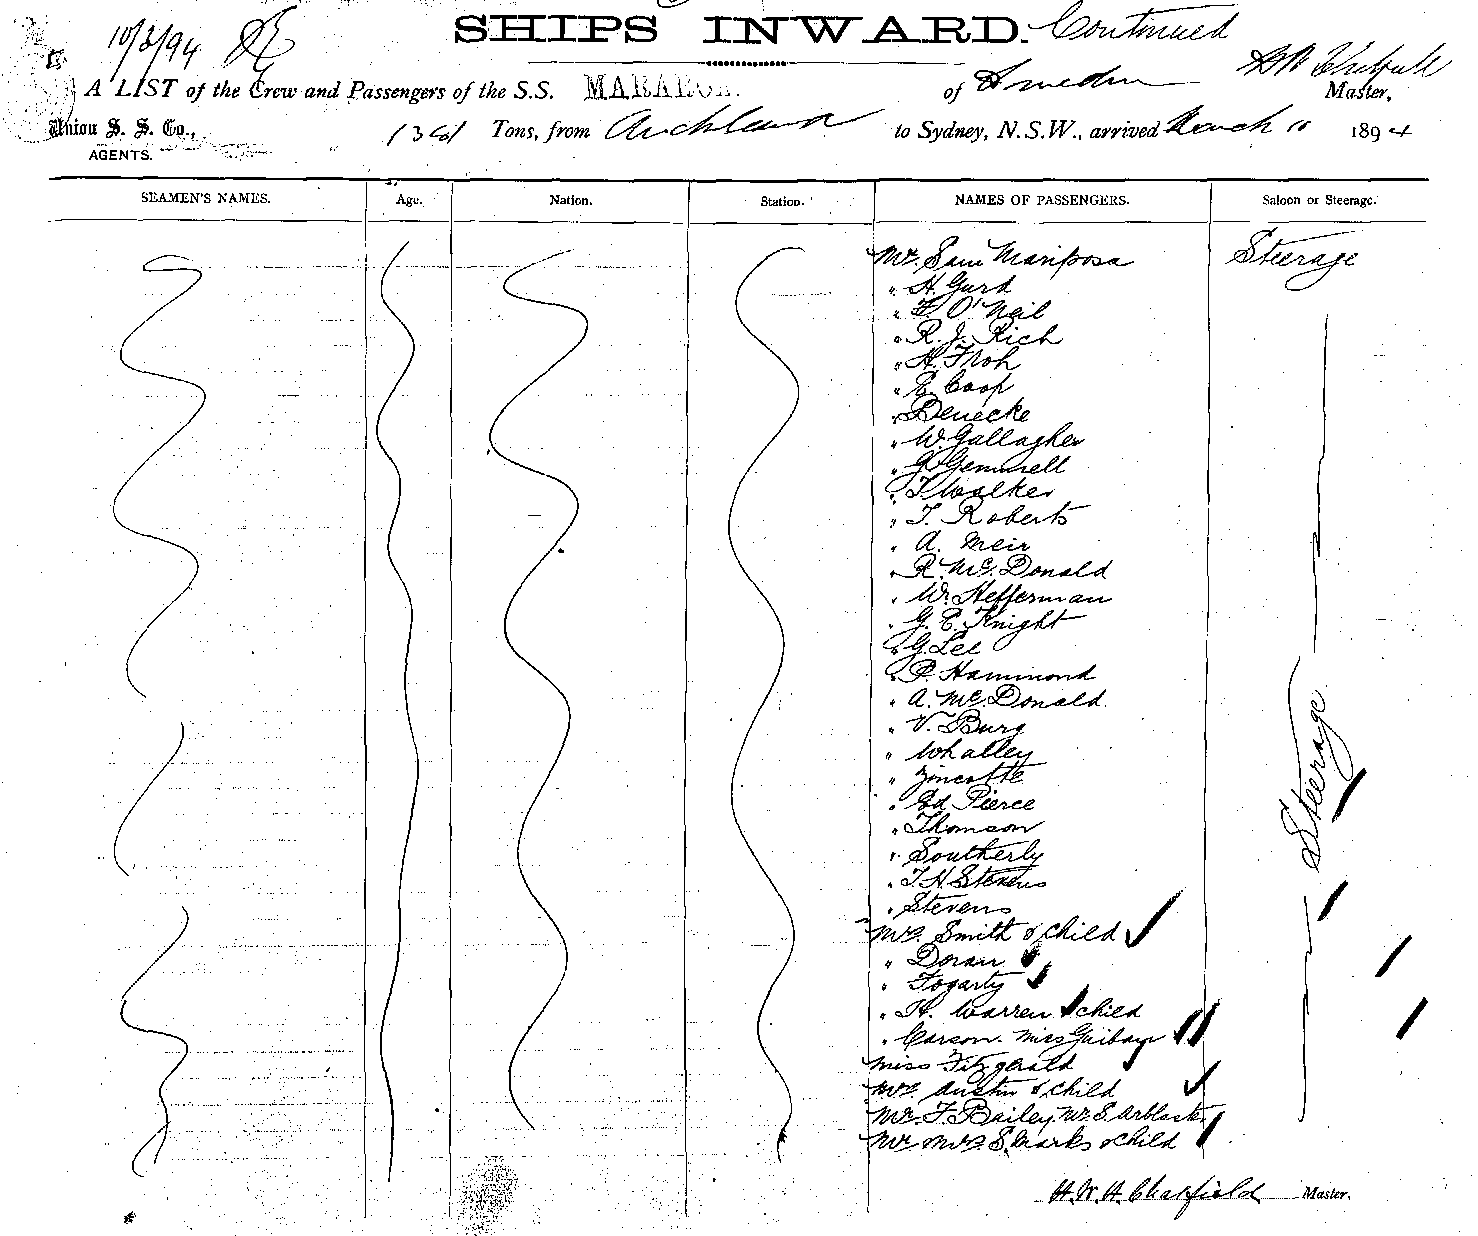 SHIPS INWARD. Continued
10/3/94
A LIST of the Crew and Passengers of the S.S. MARAROA. of Master,
Union S. S. Co., Tons, from Auckland to Sydney, N.S.W., arrived March 10 1894
AGENTS.
SEAMEN'S NAMES. Age. Nation. Station. NAMES OF PASSENGERS. Saloon or Steerage.
Mr. Sam Mariposa Steerage
" H. Gurd
" F. O'Neil
" R. J. Rich
" H. Froh
" R. Coop
" Denecke
" W. Gallagher
" G. Gemmell
" T. Walker
" T. Roberts
" A. Meir
" R. McDonald
" W. Hefferman
" G. E. Knight
" G. Lee
" P. Hammond
" A. McDonald
" V. Burg
" Whalley
" Zincotte
" Ed Pierce
" Thomson
" Southerly
" T. H. Stevens
" Stevens
Steerage
Mrs. Smith & child
" Doran
" Fogarty
" H. Warren & child
" Carson. Miss
Miss Fitzgerald
Mrs. Austin & child
Mr. F. Bailey. Mr. S. Arblaster
Mr Mrs S. Marks & child
H. W. H. Chatfield Master.